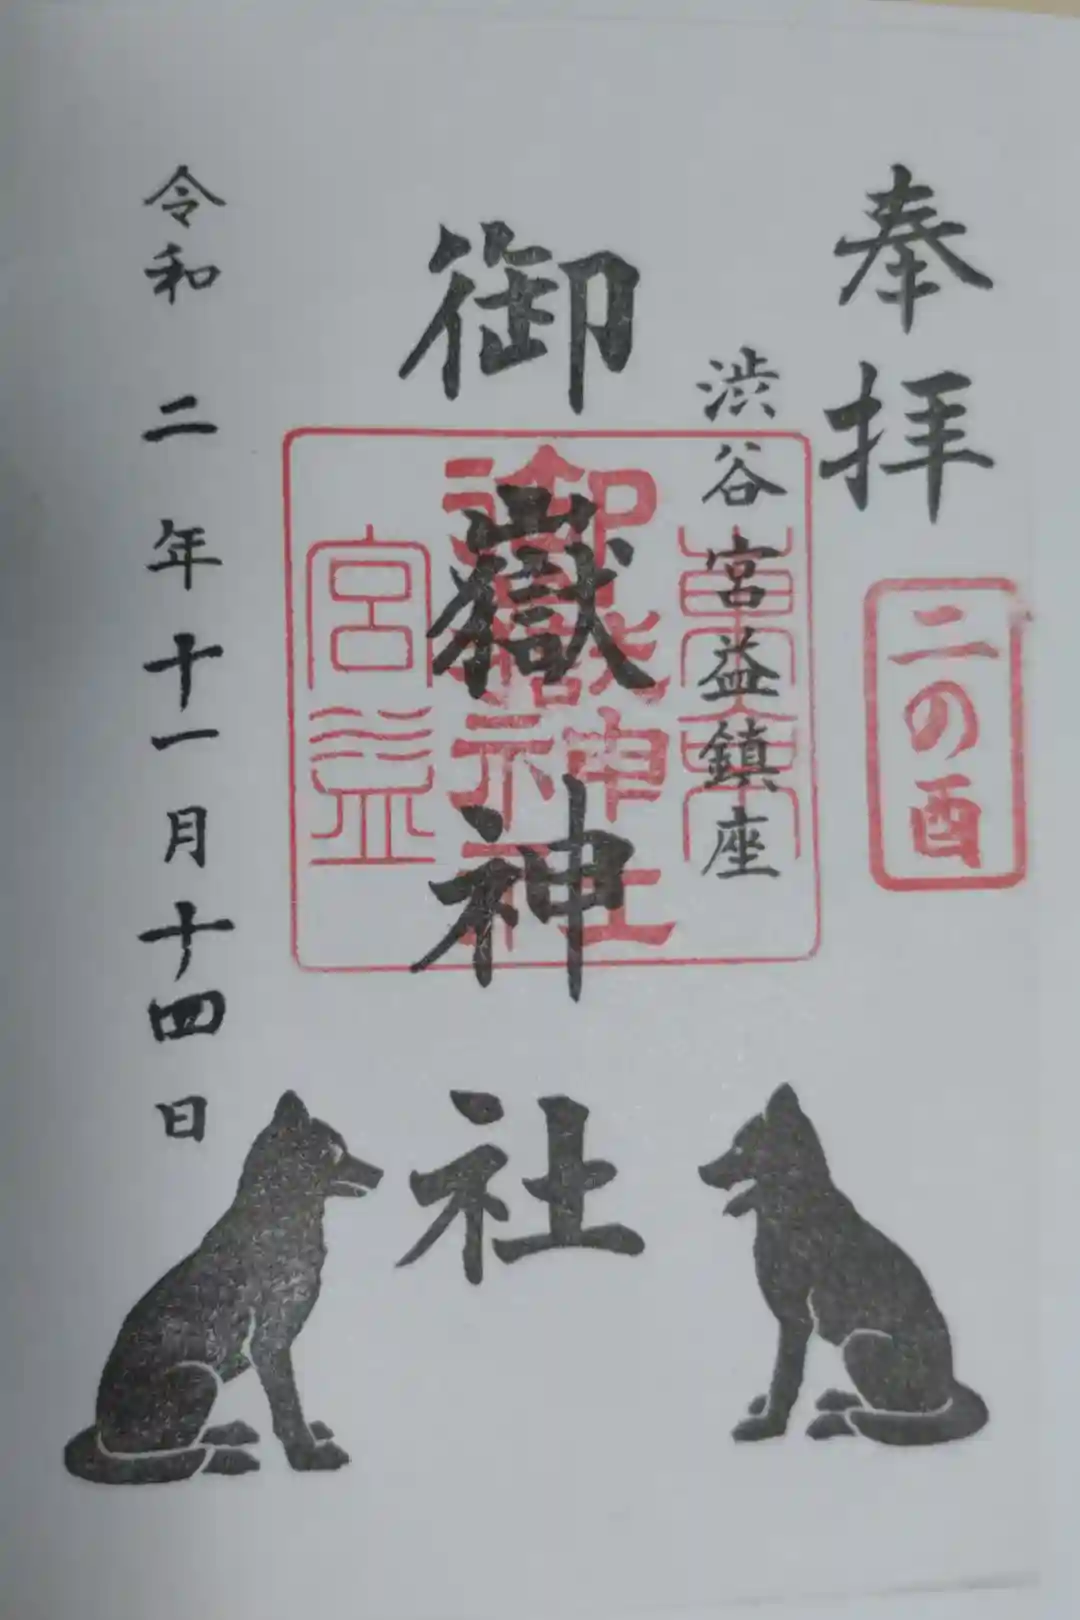 奉拝
二の酉
渋谷宮益鎮座
御嶽神社
東京
御嶽神社
宮益
令和二年十一月十四日